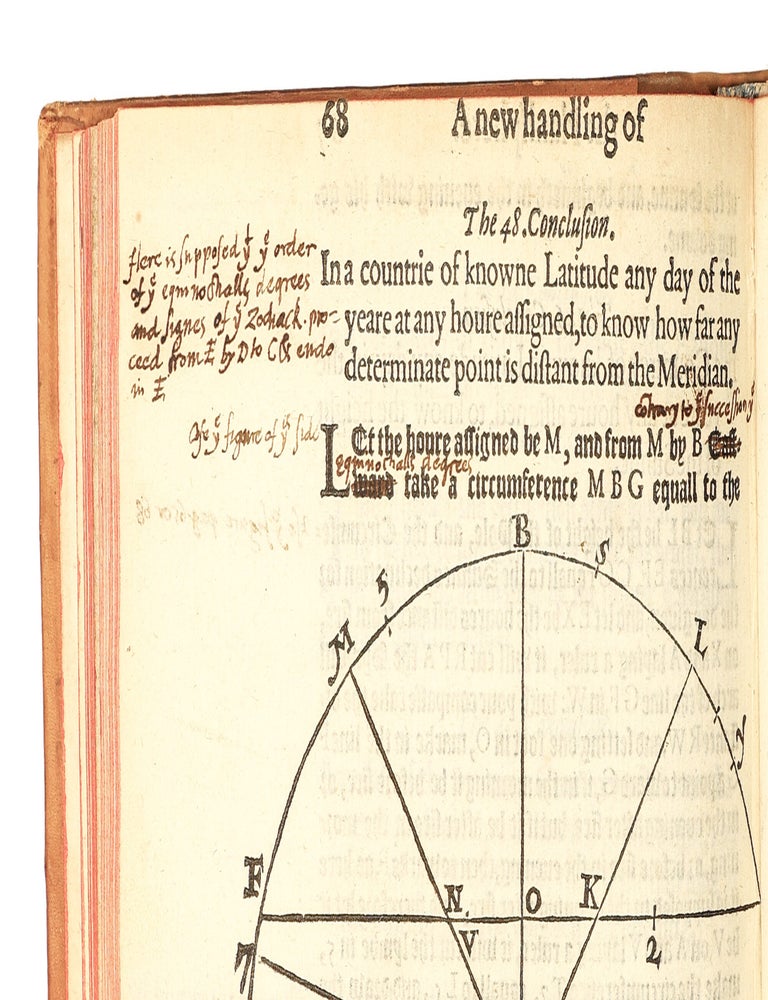 68 A new handling of
The 48. Conclusion.
Here is supposed yt ye order
of ye equinoctiall degrees
and signes of ye Zodiack. pro=
ceed from E by D to C & ends
in E
In a countrie of knowne Latitude any day of the
yeare at any houre assigned, to know how far any
determinate point is distant from the Meridian.
contrary to ye succession
ye figure of ys side
LEt the houre assigned be M, and from M by B
equinoctiall degrees
take a circumference M B G equall to the
B
5 s
M L
y
F N. O K
V 2
7